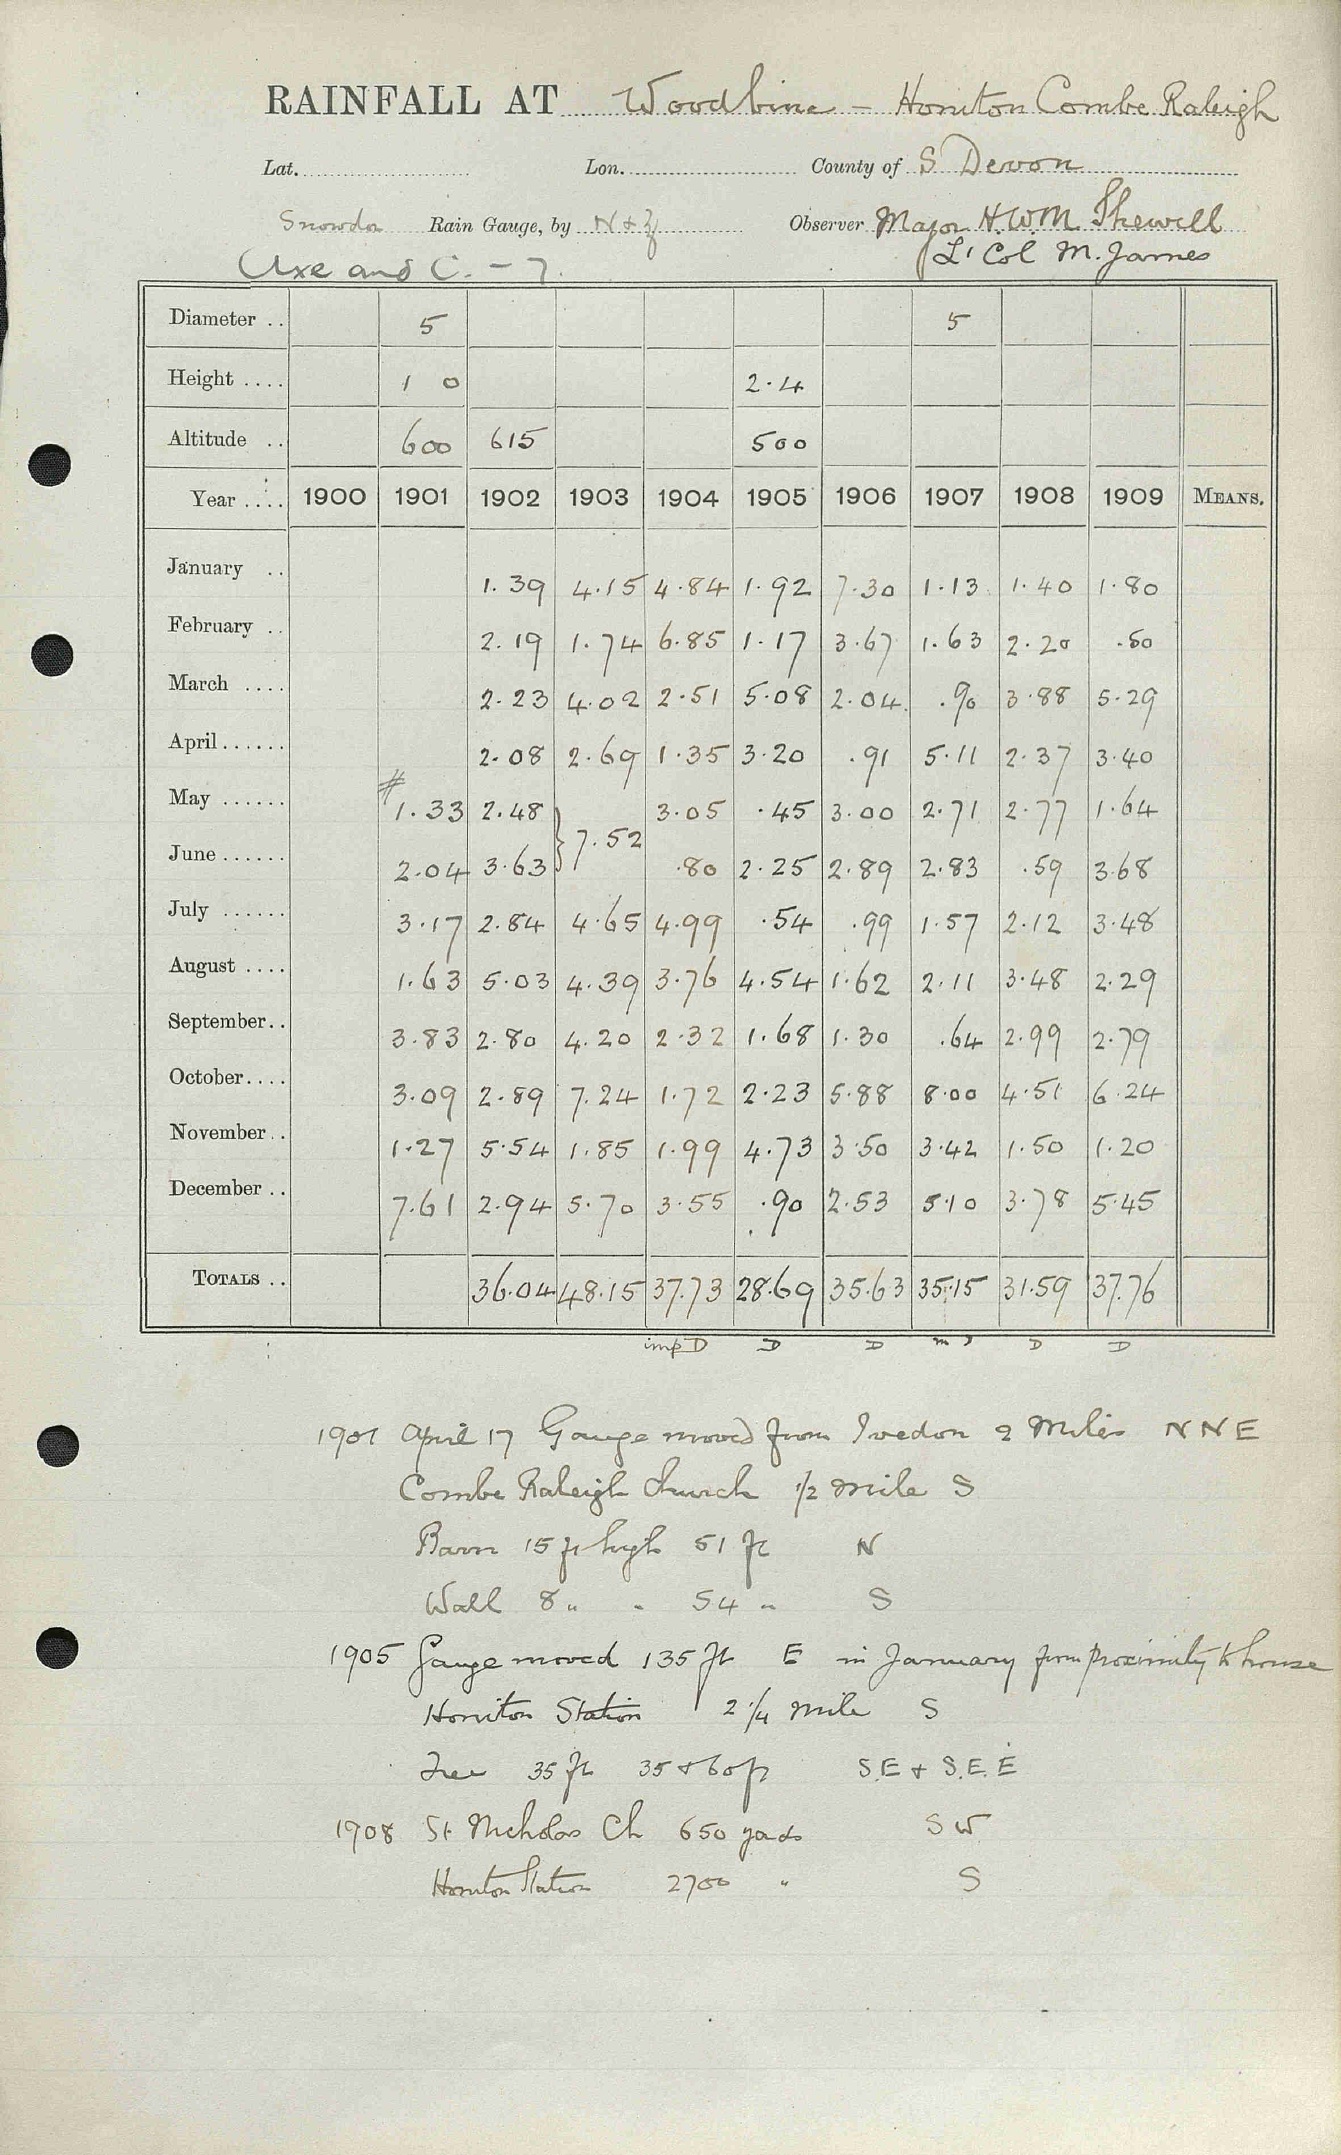 RAINFALL AT Woodbine - Honiton Combe Raleigh
Lat. Lon. County of S Devon
Snowdon Rain Gauge, by N & Z Observer Major H.W.M. Shewell
Axe and C. - 7. Lt Col M. James
Diameter .. 5 5
Height .... 1 0 2.4
Altitude .. 600 615 500
Year .... 1900 1901 1902 1903 1904 1905 1906 1907 1908 1909 MEANS.
January .. 1.39 4.15 4.84 1.92 7.30 1.13 1.40 1.80
February .. 2.19 1.74 6.85 1.17 3.67 1.63 2.20 .50
March .... 2.23 4.02 2.51 5.08 2.04 .90 3.88 5.29
April ...... 2.08 2.69 1.35 3.20 .91 5.11 2.37 3.40
May ...... # 1.33 2.48 } 7.52 3.05 .45 3.00 2.71 2.77 1.64
June ...... 2.04 3.63 .80 2.25 2.89 2.83 .59 3.68
July ...... 3.17 2.84 4.65 4.99 .54 .99 1.57 2.12 3.48
August .... 1.63 5.03 4.39 3.76 4.54 1.62 2.11 3.48 2.29
September.. 3.83 2.80 4.20 2.32 1.68 1.30 .64 2.99 2.79
October.... 3.09 2.89 7.24 1.72 2.23 5.88 8.00 4.51 6.24
November.. 1.27 5.54 1.85 1.99 4.73 3.50 3.42 1.50 1.20
December .. 7.61 2.94 5.70 3.55 .90 2.53 5.10 3.78 5.45
TOTALS .. 36.04 48.15 37.73 28.69 35.63 35.15 31.59 37.76
imp D D D D D
1901 April 17 Gauge moved from Ivedon 2 Miles N N E
Combe Raleigh Church 1/2 mile S
Barn 15 ft high 51 ft N
Wall 8 " " 54 " S
1905 Gauge moved 135 ft E in January from proximity to house
Honiton Station 2 1/4 mile S
Tree 35 ft 35 & 60 ft S.E & S.E.E
1908 St Nicholas Ch 650 yards S W
Honiton Station 2700 " S